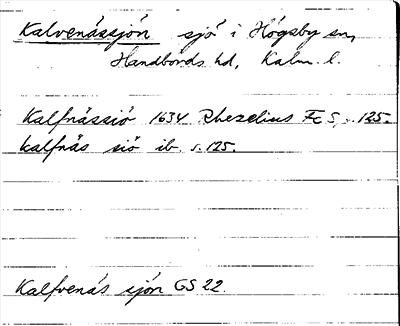 Kalvenässjön sjö i Högsby sn,
Handbords hd, Kalm. l.
Kalfnässiö 1634 Rhezelius FC 5, s. 125.
kalfnäs siö ib. s. 125.
Kalfvenäs sjön GS 22.